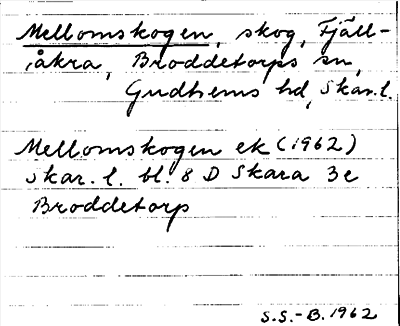 Mellomskogen, skog, Fjäll-
åkra, Broddetorps sn,
Gudhems hd, Skar. l.
Mellomskogen ek (1962)
Skar. l. bl. 8 D Skara 3e
Broddetorp
S.S.-B. 1962